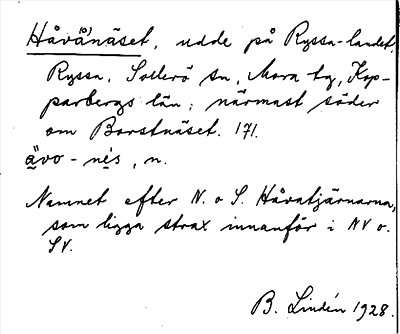 Håvå(ö)näset, udde på Ryssa-landet,
Ryssa, Sollerö sn, Mora tg, Kop-
parbergs län; närmast söder
om Borstnäset. 171.
ävo-nés, n.
Namnet efter N. o S. Håvatjärnarna,
som ligga strax innanför i NV o.
SV.
B. Lindén 1928.